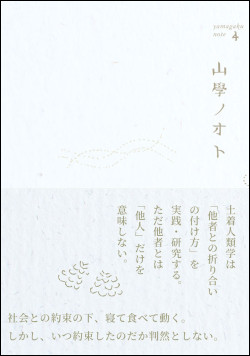 yamagaku
note 4
山學ノオト
土着人類学は
「他者との折り合い
の付け方」を
実践・研究する。
ただ他者とは
「他人」だけを
意味しない。
社会との約束の下、寝て食べて動く。
しかし、いつ約束したのだか判然としない。